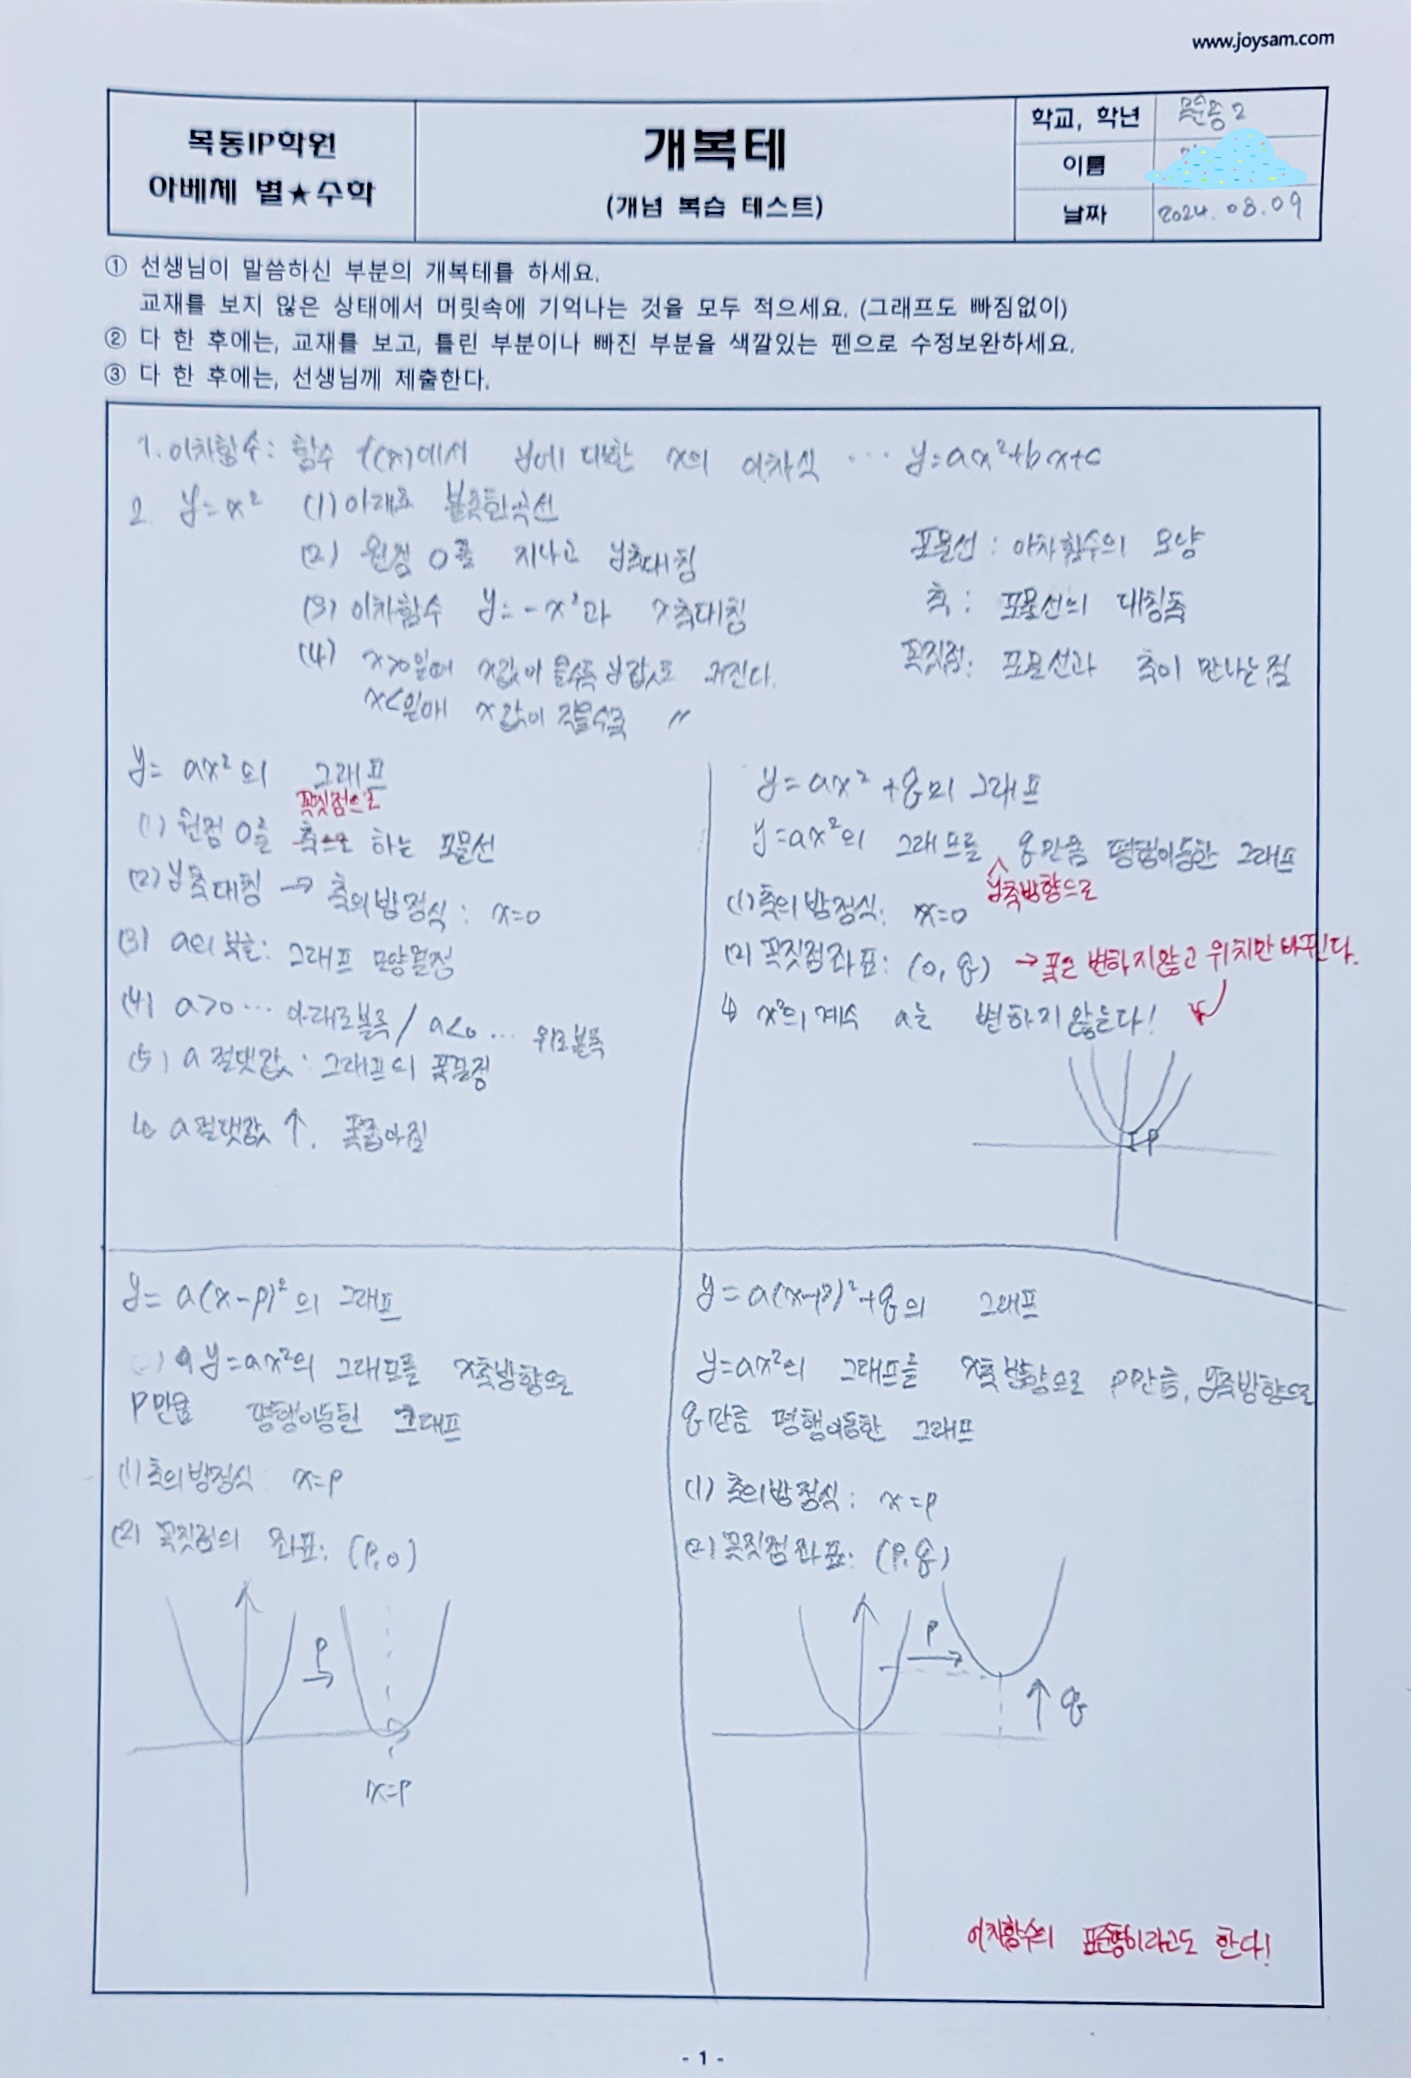 www.joysam.com
목동IP학원
아베체 별★수학
개복테
(개념 복습 테스트)
학교, 학년
이름
날짜
2024.08.09
① 선생님이 말씀하신 부분의 개복테를 하세요.
교재를 보지 않은 상태에서 머릿속에 기억나는 것을 모두 적으세요. (그래프도 빠짐없이)
② 다 한 후에는, 교재를 보고, 틀린 부분이나 빠진 부분을 색깔있는 펜으로 수정보완하세요.
③ 다 한 후에는, 선생님께 제출한다.
1. 이차함수: 함수 f(x)에서 y에 대한 x의 이차식 … y=ax²+bx+c
2. y=x² (1) 아래로 볼록한곡선
(2) 원점 O를 지나고 y축대칭
(3) 이차함수 y=-x²과 x축대칭
(4) x>0일때 x값이 클수록 y값도 커진다.
x<일때 x값이 작을수록 〃
포물선 : 이차함수의 모양
축 : 포물선의 대칭축
꼭짓점: 포물선과 축이 만나는점
y= ax²의 그래프
꼭짓점으로
(1) 원점 O를 축으로 하는 포물선
(2) y축대칭 → 축의방정식: x=0
(3) a의 부호: 그래프 모양결정
(4) a>0 … 아래로볼록 / a<0 … 위로볼록
(5) a 절댓값: 그래프의 폭결정
↳ a절댓값 ↑, 폭좁아짐
y=ax²+q의 그래프
y=ax²의 그래프를 q만큼 평행이동한 그래프
y축방향으로
(1) 축의 방정식: x=0
(2) 꼭짓점좌표: (0, q) → 폭은 변하지않고 위치만 바뀐다.
↳ x²의 계수 a는 변하지 않는다!
P
y= a(x-p)²의 그래프
y=ax²의 그래프를 x축방향으로
p만큼 평행이동된 그래프
(1) 축의방정식: x=p
(2) 꼭짓점의 좌표: (p,0)
P
x=p
y=a(x-p)²+q의 그래프
y=ax²의 그래프를 x축 방향으로 p만큼, y축방향으로
q만큼 평행이동한 그래프
(1) 축의방정식: x=p
(2) 꼭짓점좌표: (p,q)
P
q
이차함수의 표준형이라고도 한다!
- 1 -